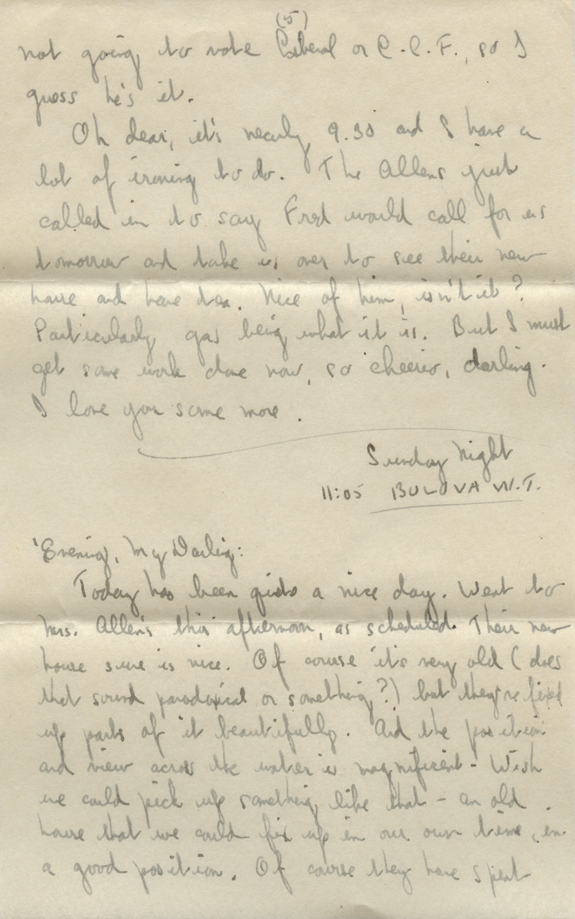 (5)
not going to vote Liberal or C.C.F., so I
guess he's it.
Oh dear, it's nearly 9.30 and I have a
lot of ironing to do. The Allens just
called in to say Fred would call for us
tomorrow and take us over to see their new
house and have tea. Nice of him, isn't it?
Particularly gas being what it is. But I must
get some work done now, so cheerio, darling.
I love you some more.
Sunday Night
11:05 BULOVA W.T.
'Evening, My Darling:
Today has been quite a nice day. Went to
Mrs. Allen's this afternoon, as scheduled. Their new
house sure is nice. Of course it's very old (does
that sound paradoxical or something?) but they're fixed
up parts of it beautifully. And the position
and view across the water is magnificent. Wish
we could pick up something like that - an old
house that we could fix up in our own time, in
a good position. Of course they have spent